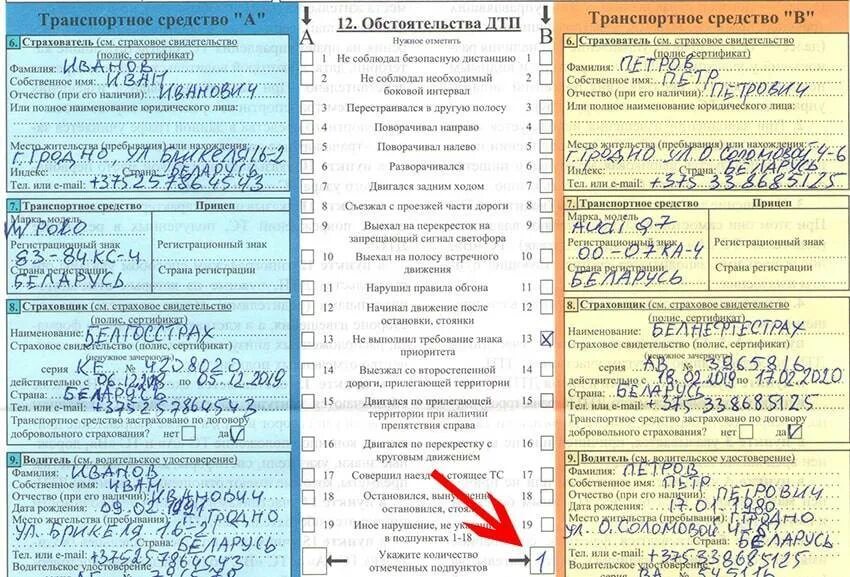 Транспортное средство "А"
6. Страхователь (см. страховое свидетельство
(полис, сертификат)
Фамилия: ИВАНОВ
Собственное имя: ИВАН
Отчество (при его наличии): ИВАНОВИЧ
Или полное наименование юридического лица:
Место жительства (пребывания) или нахождения:
Г. ГРОДНО, УЛ БРИКЕЛЯ 16-2
Индекс: Страна: БЕЛАРУСЬ
Тел. или e-mail: +375257864543
7. Транспортное средство Прицеп
Марка, модель
VW POLO
Регистрационный знак Регистрационный знак
83-84 КС-4
Страна регистрации Страна регистрации
БЕЛАРУСЬ
8. Страховщик (см. страховое свидетельство
(полис, сертификат)
Наименование: БЕЛГОССТРАХ
Страховое свидетельство (полис, сертификат)
(ненужное зачеркнуть)
серия КЕ № 4208020
действительно с 06.12.2018 по 05.12.2019
Страна: БЕЛАРУСЬ
Тел. или e-mail: +375257864543
Транспортное средство застраховано по договору
добровольного страхования? нет да V
9. Водитель (см. водительское удостоверение)
Фамилия: ИВАНОВ
Собственное имя: ИВАН
Отчество (при его наличии): ИВАНОВИЧ
Дата рождения: 09.02.1991
Место жительства (пребывания): Г. ГРОДНО
УЛ. БРИКЕЛЯ 16-2
Страна: БЕЛАРУСЬ
Тел. или e-mail: +375257864543
А 12. Обстоятельства ДТП В
Нужное отметить
1 Не соблюдал безопасную дистанцию 1
2 Не соблюдал необходимый 2
боковой интервал
3 Перестраивался в другую полосу 3
4 Поворачивал направо 4
5 Поворачивал налево 5
6 Разворачивался 6
7 Двигался задним ходом 7
8 Съезжал с проезжей части дороги 8
9 Выехал на перекресток на 9
запрещающий сигнал светофора
10 Выехал на полосу встречного 10
движения
11 Нарушил правила обгона 11
12 Начинал движение после 12
остановки, стоянки
13 Не выполнил требование знака 13 X
приоритета
14 Выезжал со второстепенной 14
дороги, прилегающей территории
15 Двигался по прилегающей 15
территории при наличии
препятствия справа
16 Двигался по перекрестку с 16
круговым движением
17 Совершил наезд на стоящее ТС
18 Остановился, 18
остановился, стоянки
19 Иное нарушение, не 19
в подпунктах 1-18
Укажите количество 1
отмеченных подпунктов
Транспортное средство "В"
6. Страхователь (см. страховое свидетельство
(полис, сертификат)
Фамилия: ПЕТРОВ
Собственное имя: ПЕТР
Отчество (при его наличии): ПЕТРОВИЧ
Или полное наименование юридического лица:
Место жительства (пребывания) или нахождения:
Г. ГРОДНО. УЛ. О. СОЛОМОВОЙ, 4-6
Индекс: Страна: БЕЛАРУСЬ
Тел. или e-mail: +375338685125
7. Транспортное средство Прицеп
Марка, модель
AUDI Q7
Регистрационный знак Регистрационный знак
00-07 КА-4
Страна регистрации Страна регистрации
БЕЛАРУСЬ
8. Страховщик (см. страховое свидетельство
(полис, сертификат)
Наименование: БЕЛНЕФТЕСТРАХ
Страховое свидетельство (полис, сертификат)
(ненужное зачеркнуть)
серия АБ № 3965816
действительно с 18.02.2019 по 17.02.2020
Страна: БЕЛАРУСЬ
Тел. или e-mail: +375338685125
Транспортное средство застраховано по договору
добровольного страхования? нет да V
9. Водитель (см. водительское удостоверение)
Фамилия: ПЕТРОВ
Собственное имя: ПЕТР
Отчество (при его наличии): ПЕТРОВИЧ
Дата рождения: 17.01.1980
Место жительства (пребывания): Г. ГРОДНО
УЛ. О. СОЛОМОВОЙ
Страна: БЕЛАРУСЬ
Тел. или e-mail: +375338685125